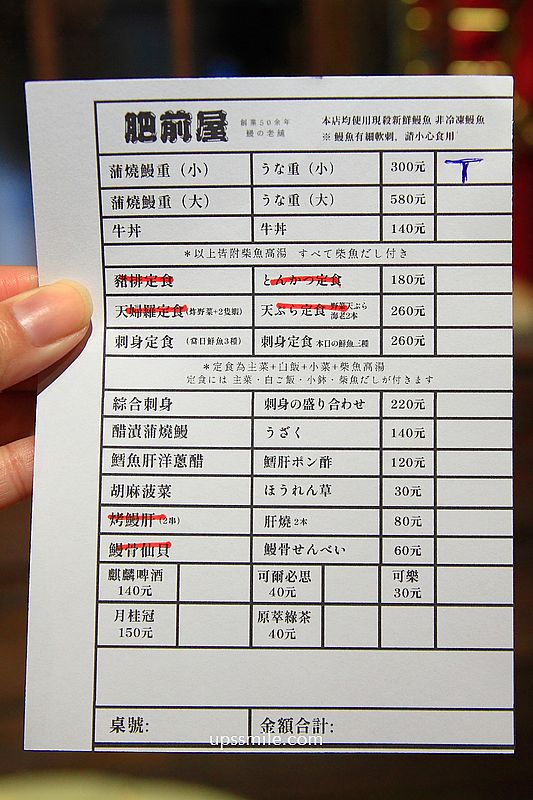 肥前屋 創業50余年 本店均使用現殺新鮮鰻魚 非冷凍鰻魚
鰻の老舗 ※ 鰻魚有細軟刺，請小心食用
蒲燒鰻重（小） うな重（小） 300元 T
蒲燒鰻重（大） うな重（大） 580元
牛丼 牛丼 140元
＊以上皆附柴魚高湯 すべて柴魚だし付き
豬排定食 とんかつ定食 180元
天婦羅定食(炸野菜+2隻蝦) 天ぷら定食 野菜天ぷら 海老2本 260元
刺身定食 (當日鮮魚3種) 刺身定食 本日の鮮魚三種 260元
＊定食為主菜+白飯+小菜+柴魚高湯
定食には 主菜・白ご飯・小鉢・柴魚だしが付きます
綜合刺身 刺身の盛り合わせ 220元
醋漬蒲燒鰻 うざく 140元
鱈魚肝洋蔥醋 鱈肝ポン酢 120元
胡麻菠菜 ほうれん草 30元
烤鰻肝(2串) 肝燒 2本 80元
鰻骨仙貝 鰻骨せんべい 60元
麒麟啤酒 可爾必思 可樂
140元 40元 30元
月桂冠 原萃綠茶
150元 40元
桌號: 金額合計:
upssmile.com